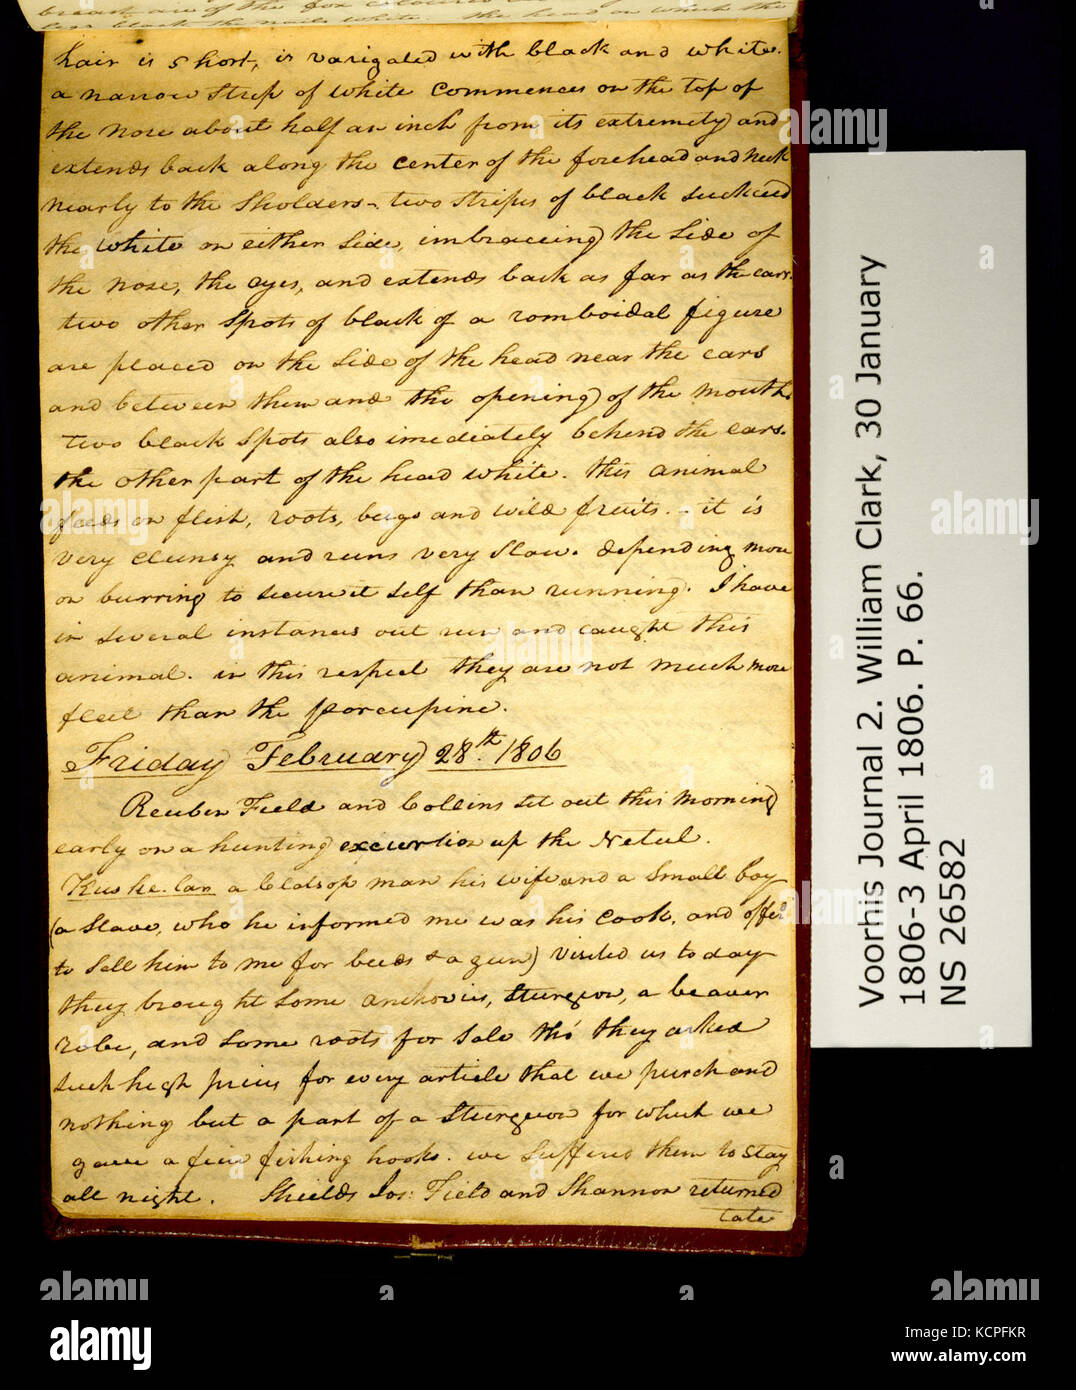 hair is short, is varigated with black and white.
a narrow strip of white commences on the top of
the nose about half an inch from its extremety and
extends back along the center of the forehead and neck
nearly to the Sholders - two stripes of black suckceed
the white on either side, imbraceing the side of
the nose, the eyes, and extends back as far as the ears.
two other Spots of black of a romboidal figure
are placed on the side of the head near the ears
and between them and the opening of the mouth.
two black Spots also imediately behend the ears.
the other part of the head white. this animal
feeds on flesh, roots, bugs and wild fruits. - it is
very clumsy and runs very slow. depending more
on burring to secure it self than running. I have
in several instances out run and caught this
animal. in this respect they are not much more
fleet than the porcupine.
Friday February 28th. 1806
Reuben Field and Collins set out this morning
early on a hunting excurtion up the Netul.
Kus ke-lar a Clatsop man his wife and a small boy
(a Slave, who he informed me was his cook, and offerd
to sell him to me for beeds & a gun) visited us to day
they brought some anchovies, Sturgeon, a beaver
robe, and some roots for sale tho' they asked
such high prices for every article that we purchand
nothing but a part of a Sturgeon for which we
gave a fiew fishing hooks. we suffered them to stay
all night. Shields Jos: Field and Shannon returned
late
Voorhis Journal 2. William Clark, 30 January
1806-3 April 1806. P. 66.
NS 26582
alamy
a
alamy
Image ID: KCPFKR
www.alamy.com